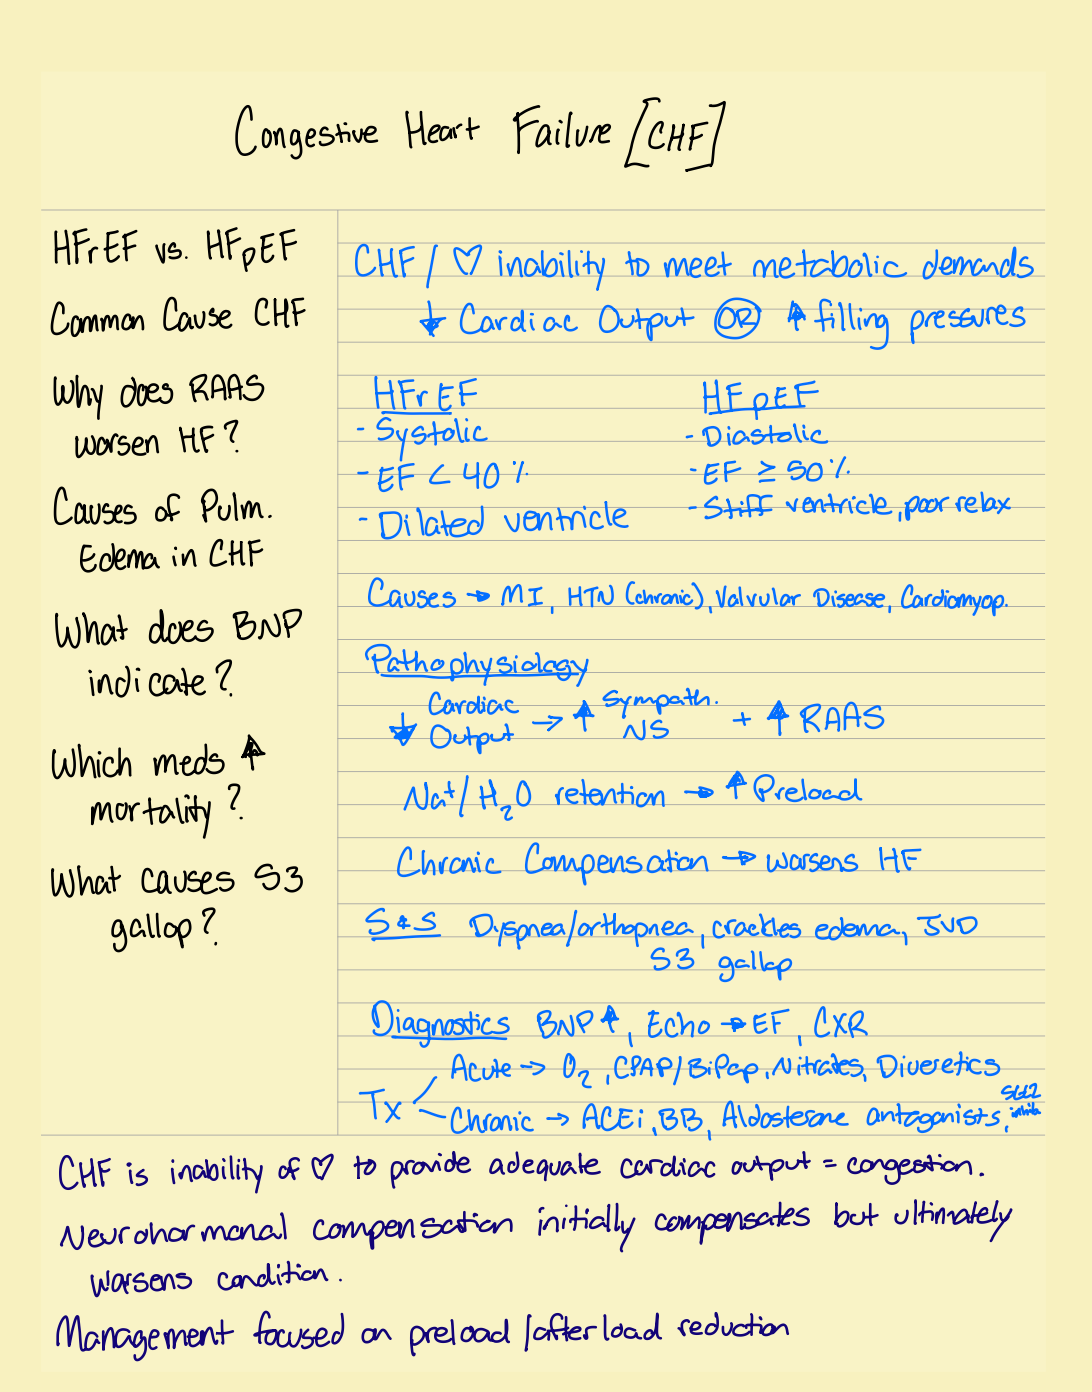 Congestive Heart Failure [CHF]
HFrEF vs. HFpEF
Common Cause CHF
Why does RAAS
worsen HF?
Causes of Pulm.
Edema in CHF
What does BNP
indicate?
Which meds ↑
mortality?
What causes S3
gallop?
CHF / ♡ inability to meet metabolic demands
↓ Cardiac Output OR ↑ filling pressures
HFrEF HFpEF
- Systolic - Diastolic
- EF < 40% - EF ≥ 50%
- Dilated ventricle - Stiff ventricle, poor relax
Causes → MI, HTN (chronic), Valvular Disease, Cardiomyop.
Pathophysiology
↓ Cardiac Output → ↑ Sympath. NS + ↑ RAAS
Na+/H2O retention → ↑ Preload
Chronic Compensation → worsens HF
S & S Dyspnea/orthopnea, crackles edema, JVD
S3 gallop
Diagnostics BNP ↑, Echo → EF, CXR
Tx
Acute → O2, CPAP/BiPap, Nitrates, Diuretics
Chronic → ACEi, BB, Aldosterone antagonists,
CHF is inability of ♡ to provide adequate cardiac output = congestion.
Neurohormonal compensation initially compensates but ultimately
worsens condition.
Management focused on preload/afterload reduction